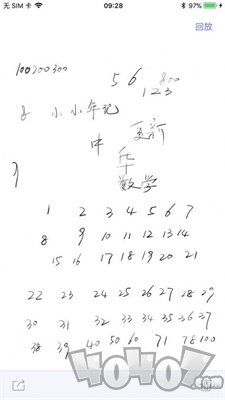 无 SIM 卡 09:28 57%
回放
100200300
5 6 800
123
小小年纪
更新
中
华
数学
1 2 3 4 5 6 7
8 9 10 11 12 13 14
15 16 17 18 19 20 21
22 23 24 25 26 27 28 29
30 31 32 33 34 35 36 37
38 39 40 50 60 71 78 100
40407